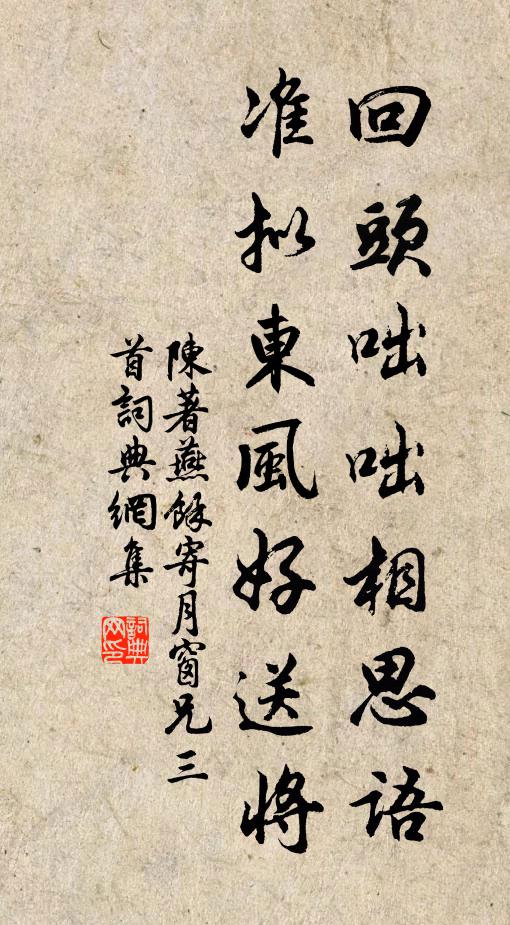 回頭咄咄相思語
准拟東風好送將
陳著燕餘寄月窗兄三
首詞典網集
詞典網印